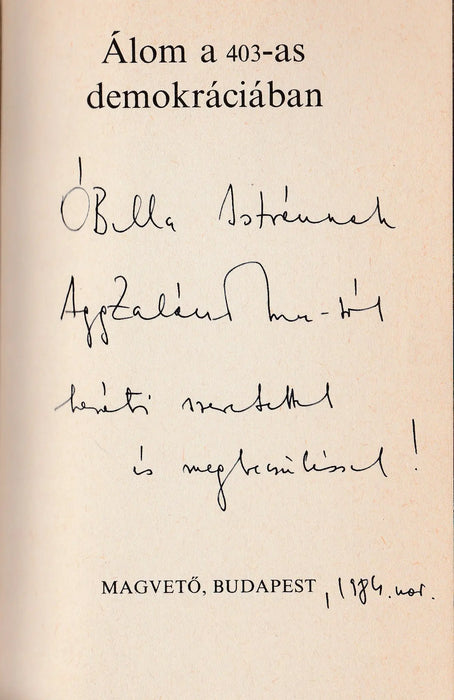 Álom a 403-as
demokráciában
ÓBella Istvánnak
AggZalán -tól
baráti szeretettel
és megbecsüléssel!
MAGVETŐ, BUDAPEST, 1984. nov.